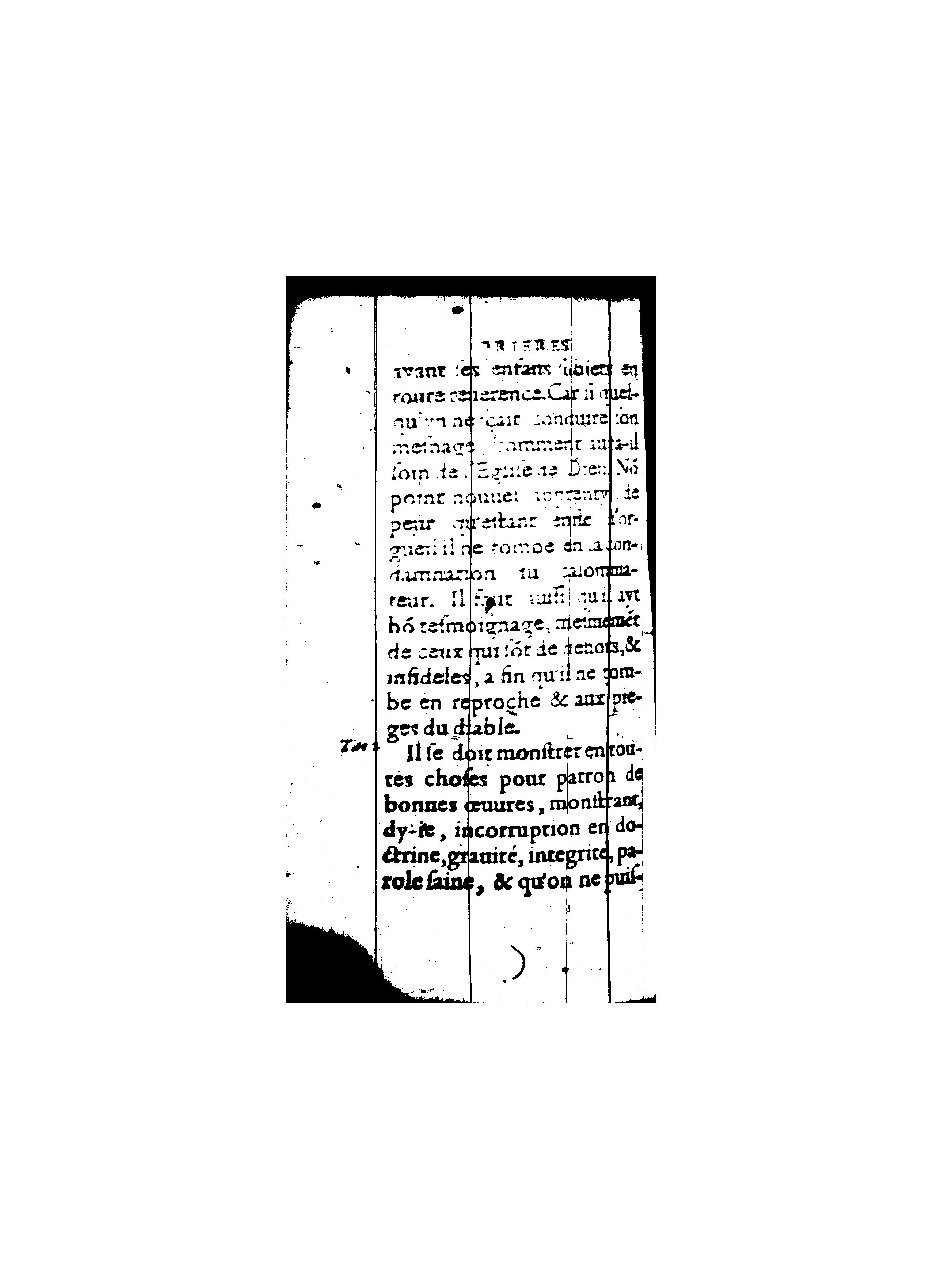 PRIERES
ayant ses enfans subiets en
toute reuerence. Car si quel-
qu'vn ne sçait conduire son
mesnage, comment aura-il
soin de l'Eglise de Dieu. Nó
point nouuel conuerty, de
peur qu'estant enflé d'or-
gueil il ne tombe en la con-
damnation du calomnia-
teur. Il faut aussi qu'il ayt
bó tesmoignage, mesmemét
de ceux qui sót de dehors, &
infideles, a fin qu'il ne tom-
be en reproche & aux pie-
ges du diable.
Il se doit monstrer en tou-
tes choses pour patron de
bonnes œuures, monstrant,
dy-ie, incorruption en do-
ctrine, grauité, integrité, pa-
role saine, & qu'on ne puis-